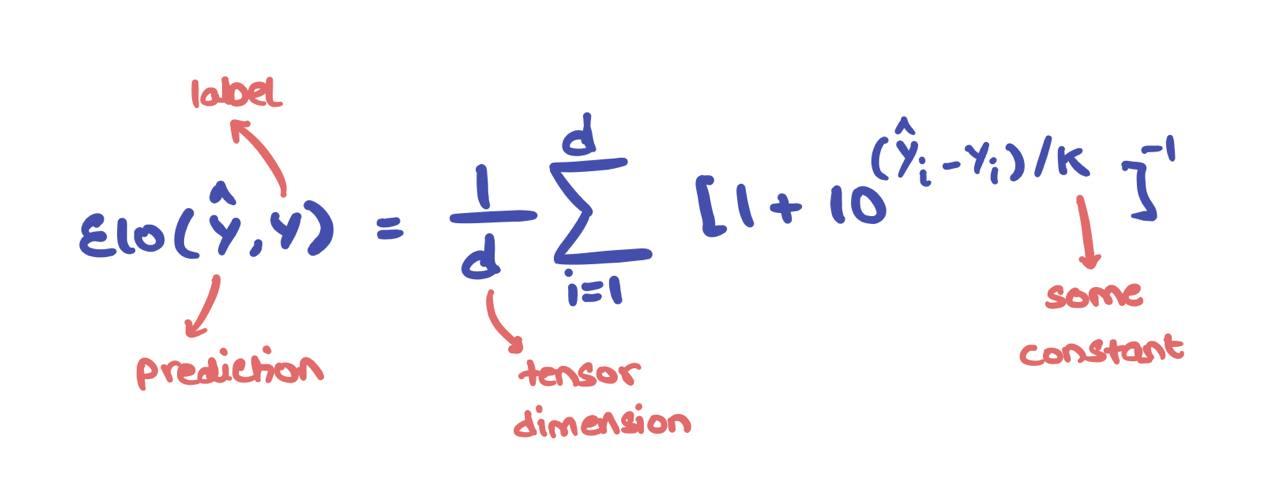 label
Elo(ŷ, y) = 1/d Σ_{i=1}^{d} [1 + 10^{(ŷ_i - y_i)/K}]^{-1}
prediction
tensor
dimension
some
constant